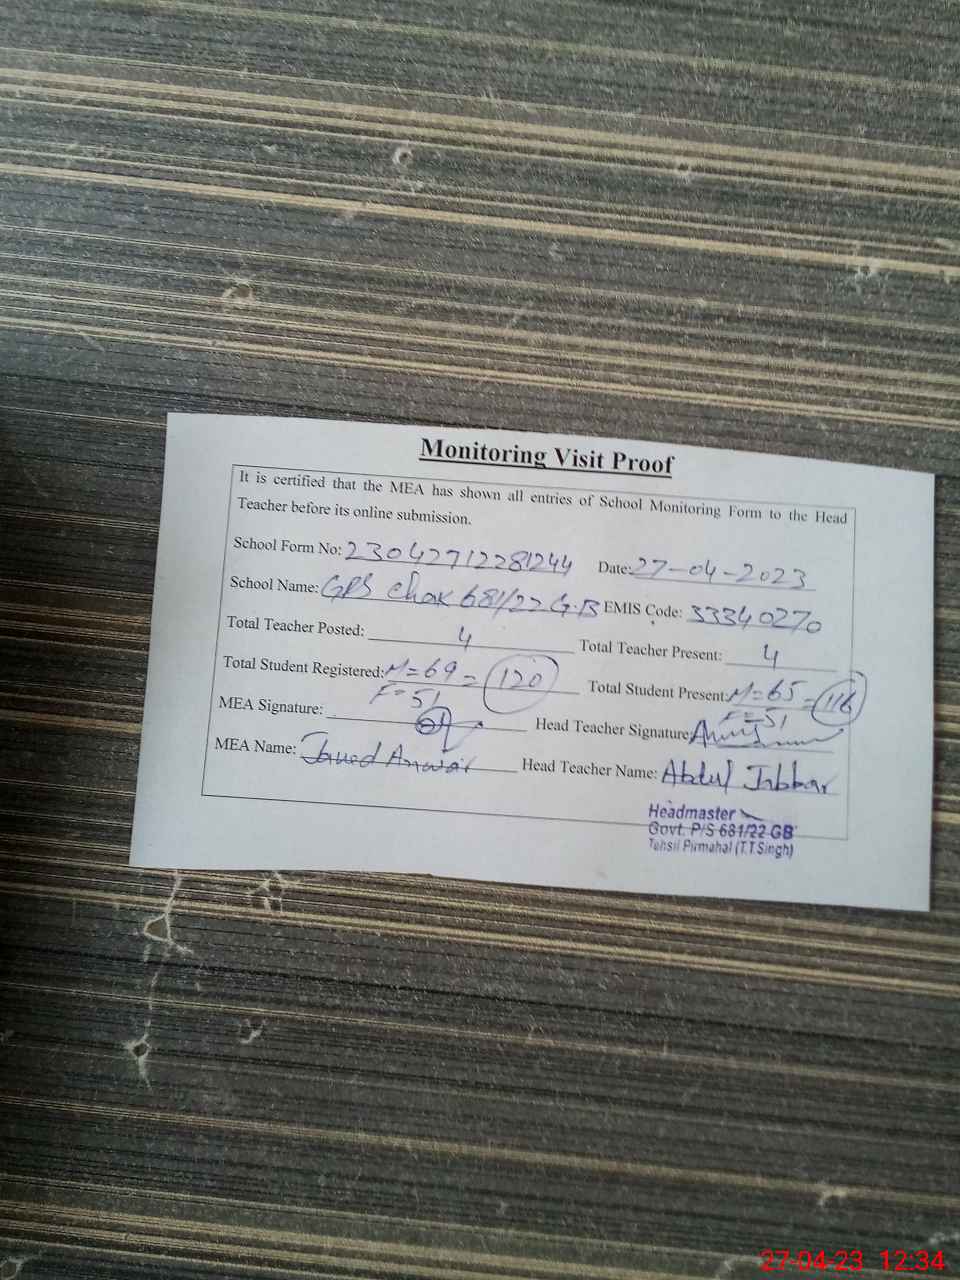 Monitoring Visit Proof
It is certified that the MEA has shown all entries of School Monitoring Form to the Head
Teacher before its online submission.
School Form No: 23042712281244 Date: 27-04-2023
School Name: GPS Chak 681/22 G.B EMIS Code: 33340270
Total Teacher Posted: 4 Total Teacher Present: 4
Total Student Registered: M=69 = 120 Total Student Present: M=65 = 116
F=51 F=51
MEA Signature: Head Teacher Signature:
MEA Name: Javed Anwar Head Teacher Name: Abdul Jabbar
Headmaster
Govt. P/S 681/22 GB
Tehsil Pirmahal (T.T.Singh)
27-04-23 12:34